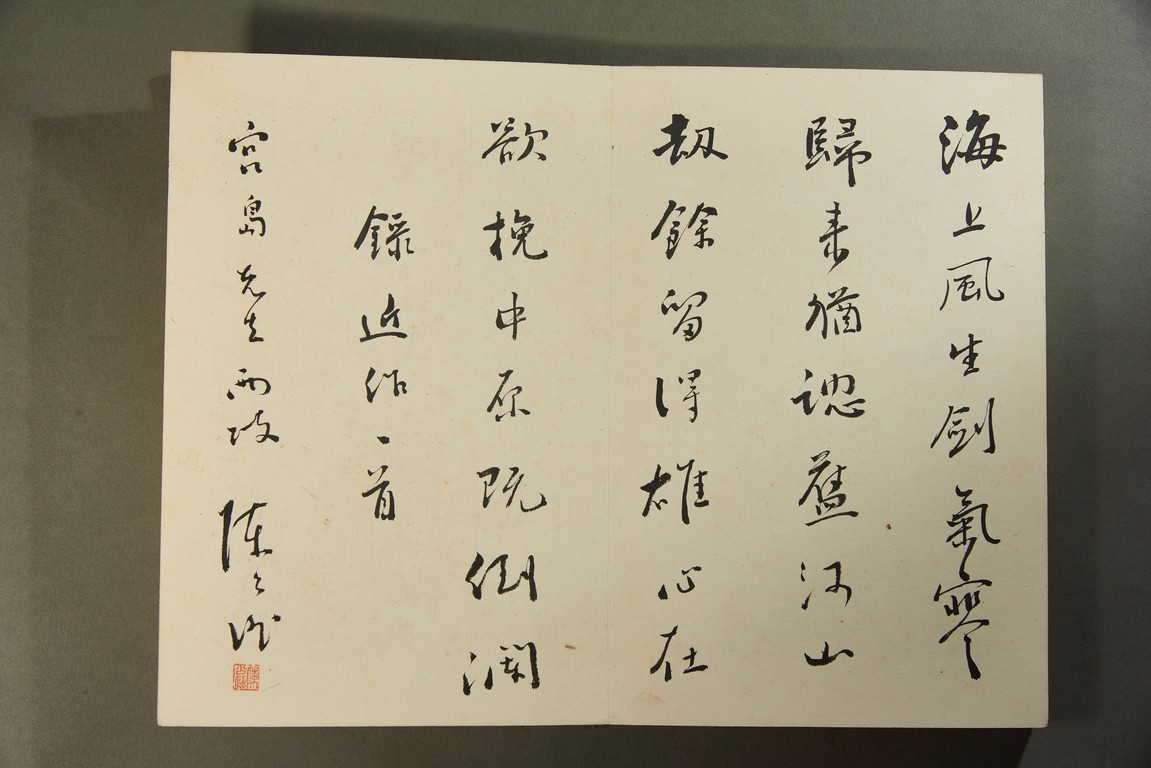 海上風生劍氣寒
歸来猶認舊河山
劫餘留得雄心在
欲挽中原既倒瀾
錄近作一首
宮島先生兩政 陳公